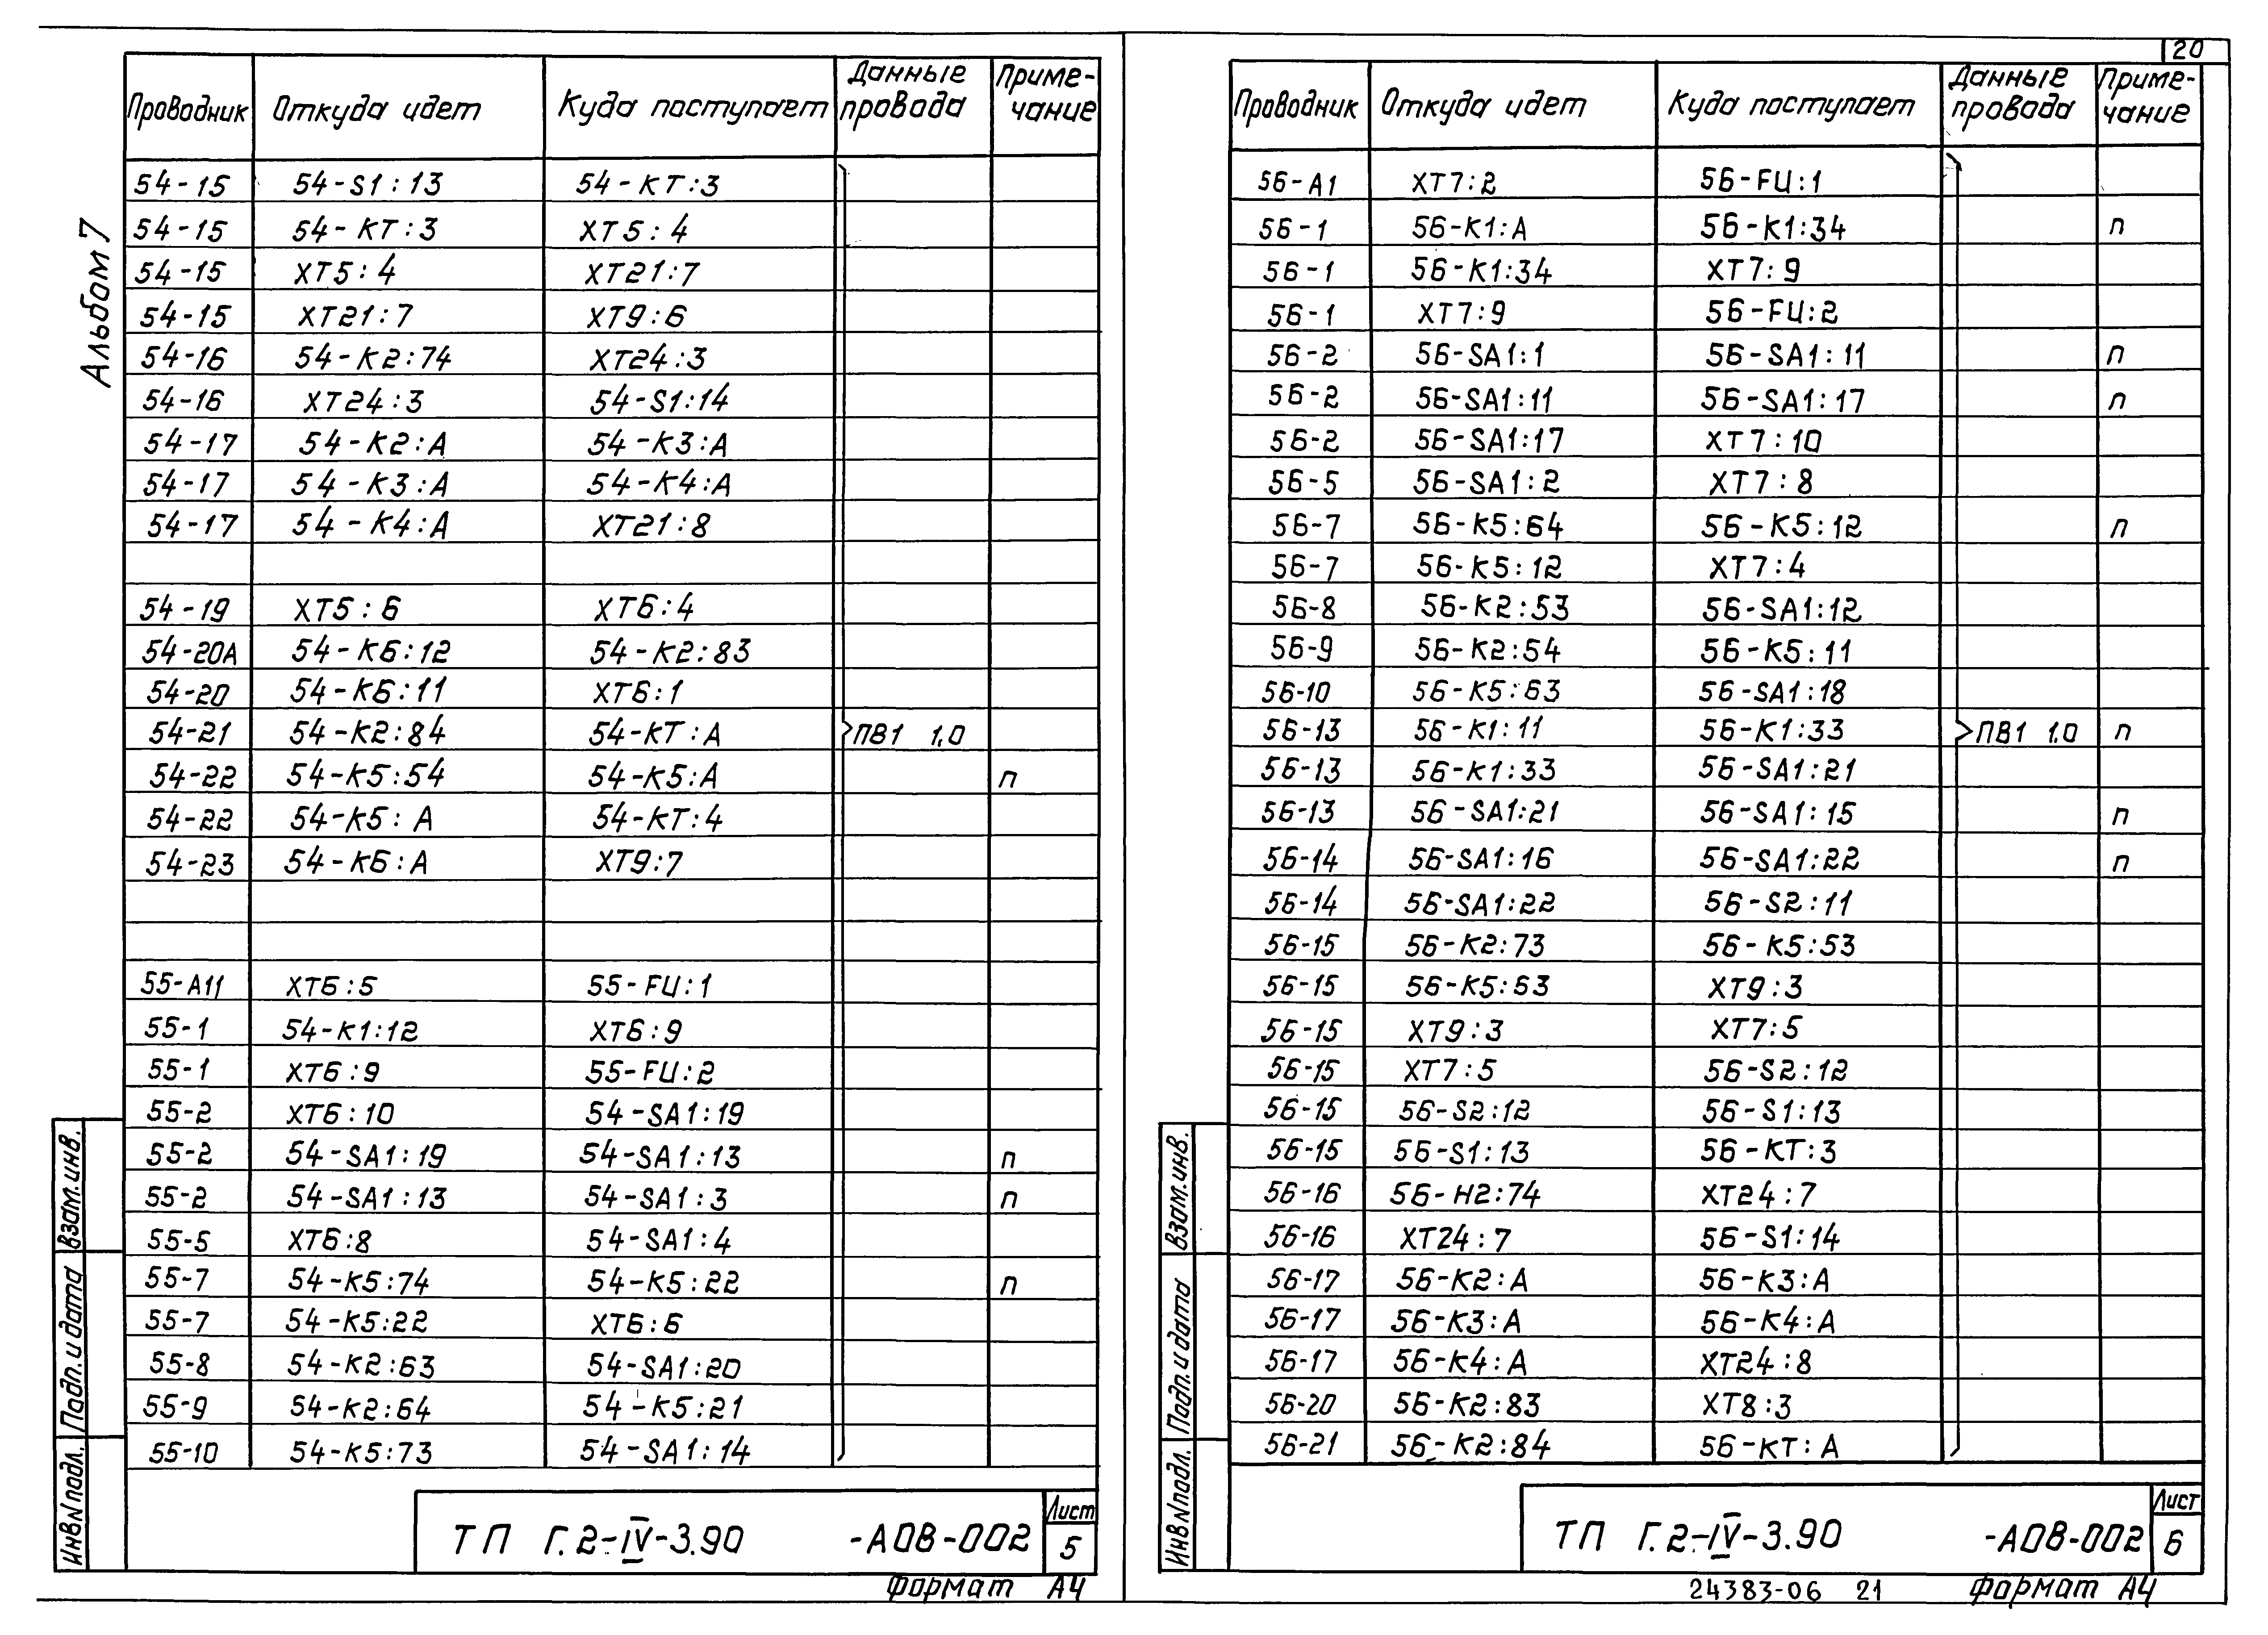 Альбом 7
Проводник Откуда идет Куда поступает Данные провода Примечание
54-15 54-S1:13 54-KT:3
54-15 54-KT:3 XT5:4
54-15 XT5:4 XT21:7
54-15 XT21:7 XT9:6
54-16 54-K2:74 XT24:3
54-16 XT24:3 54-S1:14
54-17 54-K2:A 54-K3:A
54-17 54-K3:A 54-K4:A
54-17 54-K4:A XT21:8
54-19 XT5:6 XT6:4
54-20A 54-K6:12 54-K2:83
54-20 54-K6:11 XT6:1
54-21 54-K2:84 54-KT:A ПВ1 1,0
54-22 54-K5:54 54-K5:A п
54-22 54-K5:A 54-KT:4
54-23 54-K6:A XT9:7
55-A11 XT6:5 55-FU:1
55-1 54-K1:12 XT6:9
55-1 XT6:9 55-FU:2
55-2 XT6:10 54-SA1:19
55-2 54-SA1:19 54-SA1:13 п
55-2 54-SA1:13 54-SA1:3 п
55-5 XT6:8 54-SA1:4
55-7 54-K5:74 54-K5:22 п
55-7 54-K5:22 XT6:6
55-8 54-K2:63 54-SA1:20
55-9 54-K2:64 54-K5:21
55-10 54-K5:73 54-SA1:14
Взам.инв.
Подп. и дата
Инв N подл.
ТП Г.2-IV-3.90 -АОВ-002 Лист 5
Формат А4
20
Проводник Откуда идет Куда поступает Данные провода Примечание
56-A1 XT7:2 56-FU:1
56-1 56-K1:A 56-K1:34 п
56-1 56-K1:34 XT7:9
56-1 XT7:9 56-FU:2
56-2 56-SA1:1 56-SA1:11 п
56-2 56-SA1:11 56-SA1:17 п
56-2 56-SA1:17 XT7:10
56-5 56-SA1:2 XT7:8
56-7 56-K5:64 56-K5:12 п
56-7 56-K5:12 XT7:4
56-8 56-K2:53 56-SA1:12
56-9 56-K2:54 56-K5:11
56-10 56-K5:63 56-SA1:18
56-13 56-K1:11 56-K1:33 ПВ1 1.0 п
56-13 56-K1:33 56-SA1:21
56-13 56-SA1:21 56-SA1:15 п
56-14 56-SA1:16 56-SA1:22 п
56-14 56-SA1:22 56-S2:11
56-15 56-K2:73 56-K5:53
56-15 56-K5:63 XT9:3
56-15 XT9:3 XT7:5
56-15 XT7:5 56-S2:12
56-15 56-S2:12 56-S1:13
56-15 56-S1:13 56-KT:3
56-16 56-H2:74 XT24:7
56-16 XT24:7 56-S1:14
56-17 56-K2:A 56-K3:A
56-17 56-K3:A 56-K4:A
56-17 56-K4:A XT24:8
56-20 56-K2:83 XT8:3
56-21 56-K2:84 56-KT:A
Взам.инв.
Подп. и дата
Инв N подл.
ТП Г.2-IV-3.90 -АОВ-002 Лист 6
24383-06 21 Формат А4